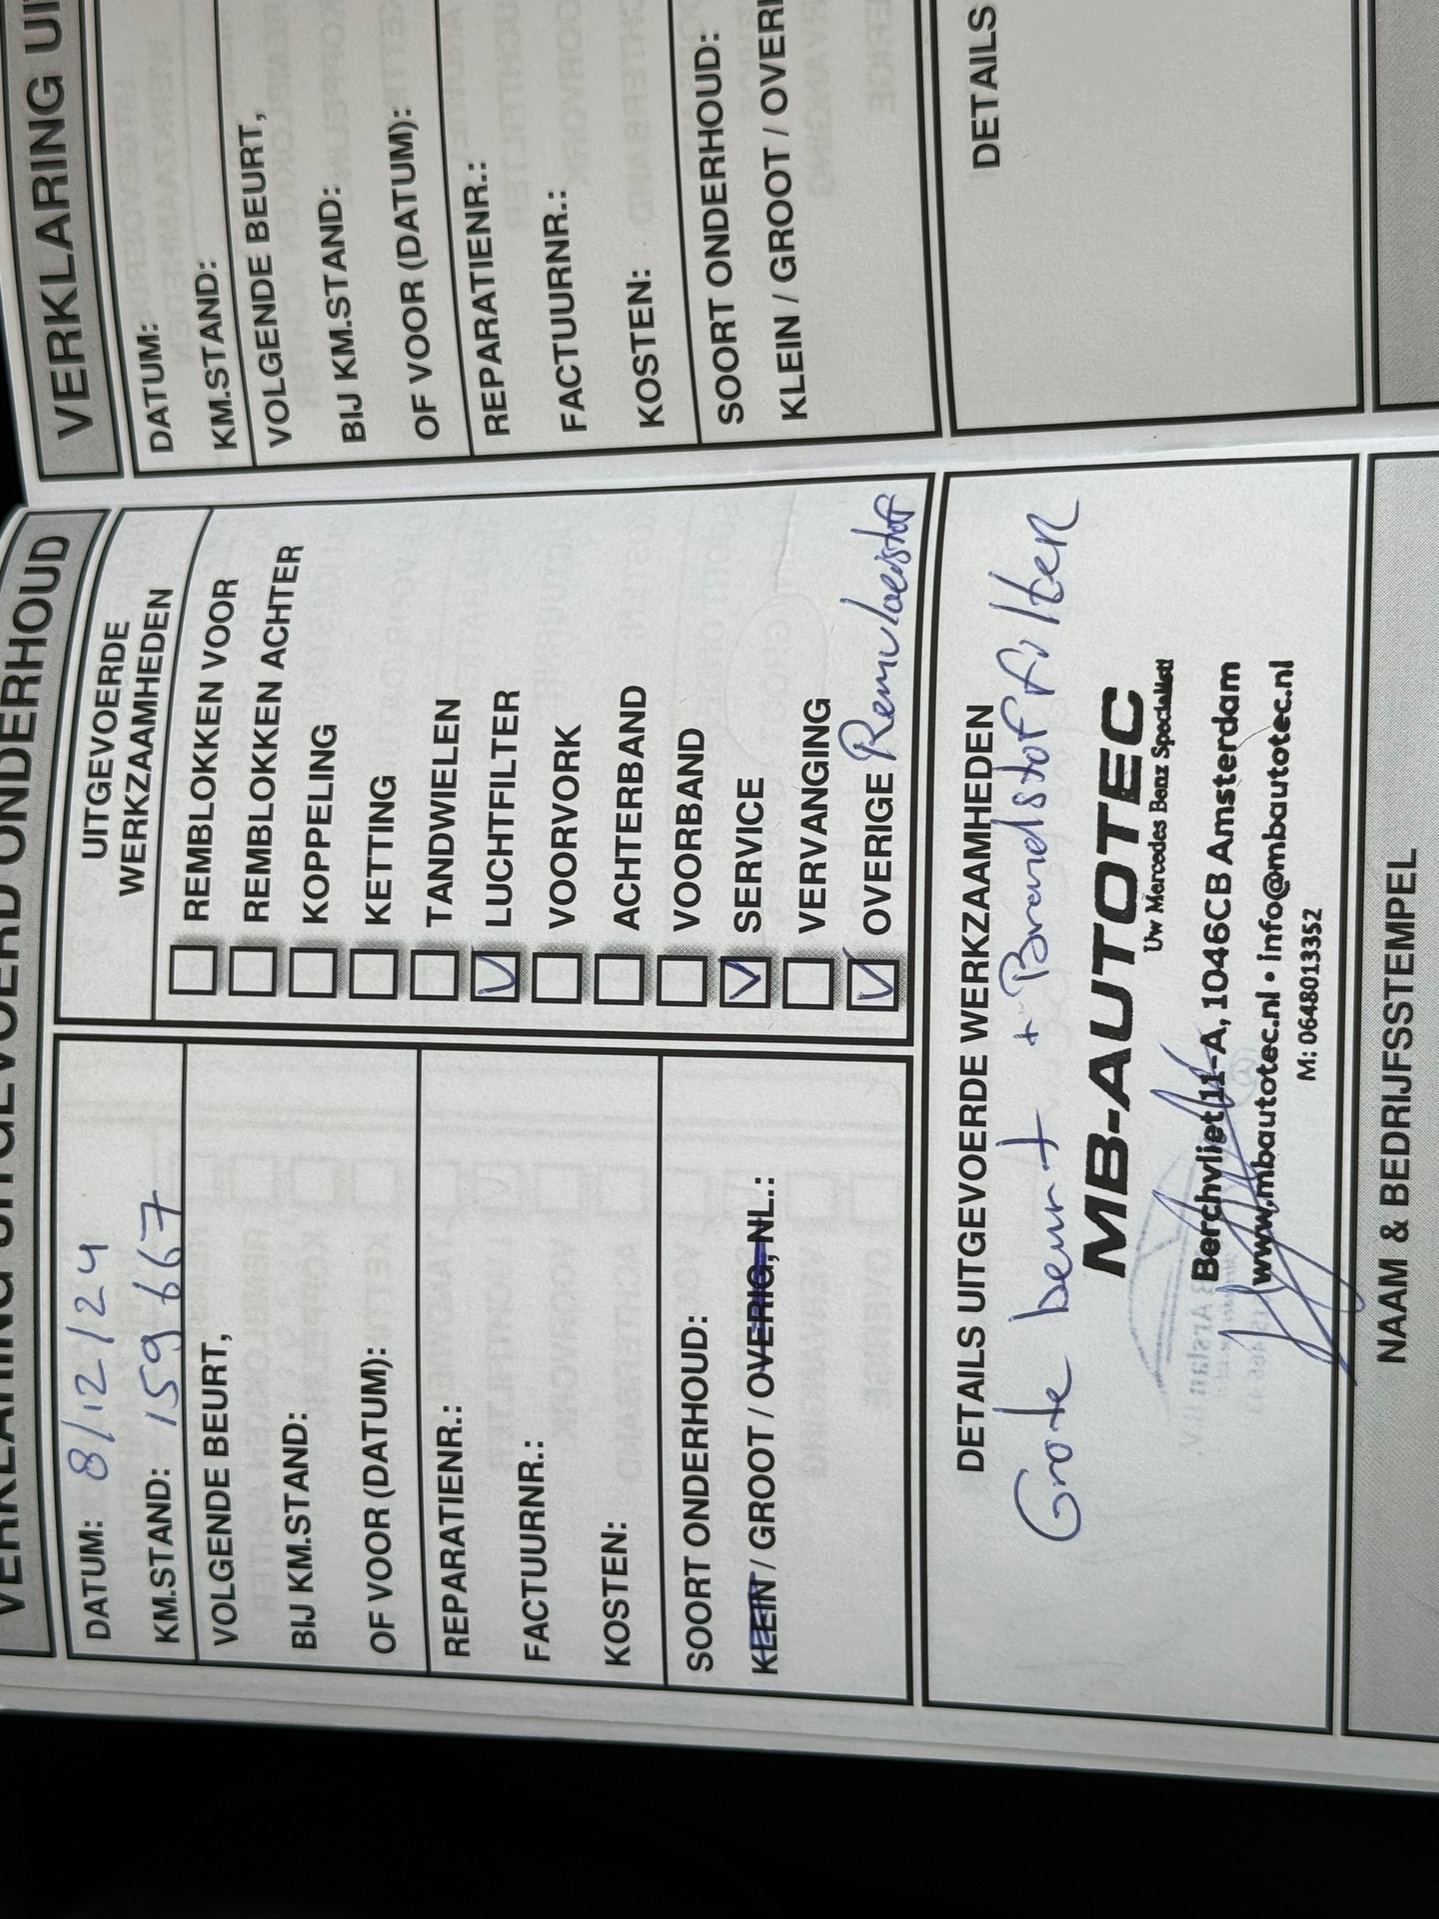 VERKLARING UITGEVOERD ONDERHOUD
DATUM: 8/12/24
KM.STAND: 159667
VOLGENDE BEURT,
BIJ KM.STAND:
OF VOOR (DATUM):
REPARATIENR.:
FACTUURNR.:
KOSTEN:
SOORT ONDERHOUD:
KLEIN / GROOT / OVERIG, NL.:
UITGEVOERDE
WERKZAAMHEDEN
REMBLOKKEN VOOR
REMBLOKKEN ACHTER
KOPPELING
KETTING
TANDWIELEN
V LUCHTFILTER
VOORVORK
ACHTERBAND
VOORBAND
V SERVICE
VERVANGING
V OVERIGE Remvloeistof
DETAILS UITGEVOERDE WERKZAAMHEDEN
Grote beurt + Brandstof filter
MB-AUTOTEC
Uw Mercedes Benz Specialist!
Berchvliet 11-A, 1046CB Amsterdam
www.mbautotec.nl • info@mbautotec.nl
M: 0648013352
NAAM & BEDRIJFSSTEMPEL
VERKLARING UI
DATUM:
KM.STAND:
VOLGENDE BEURT,
BIJ KM.STAND:
OF VOOR (DATUM):
REPARATIENR.:
FACTUURNR.:
KOSTEN:
SOORT ONDERHOUD:
KLEIN / GROOT / OVERI
DETAILS